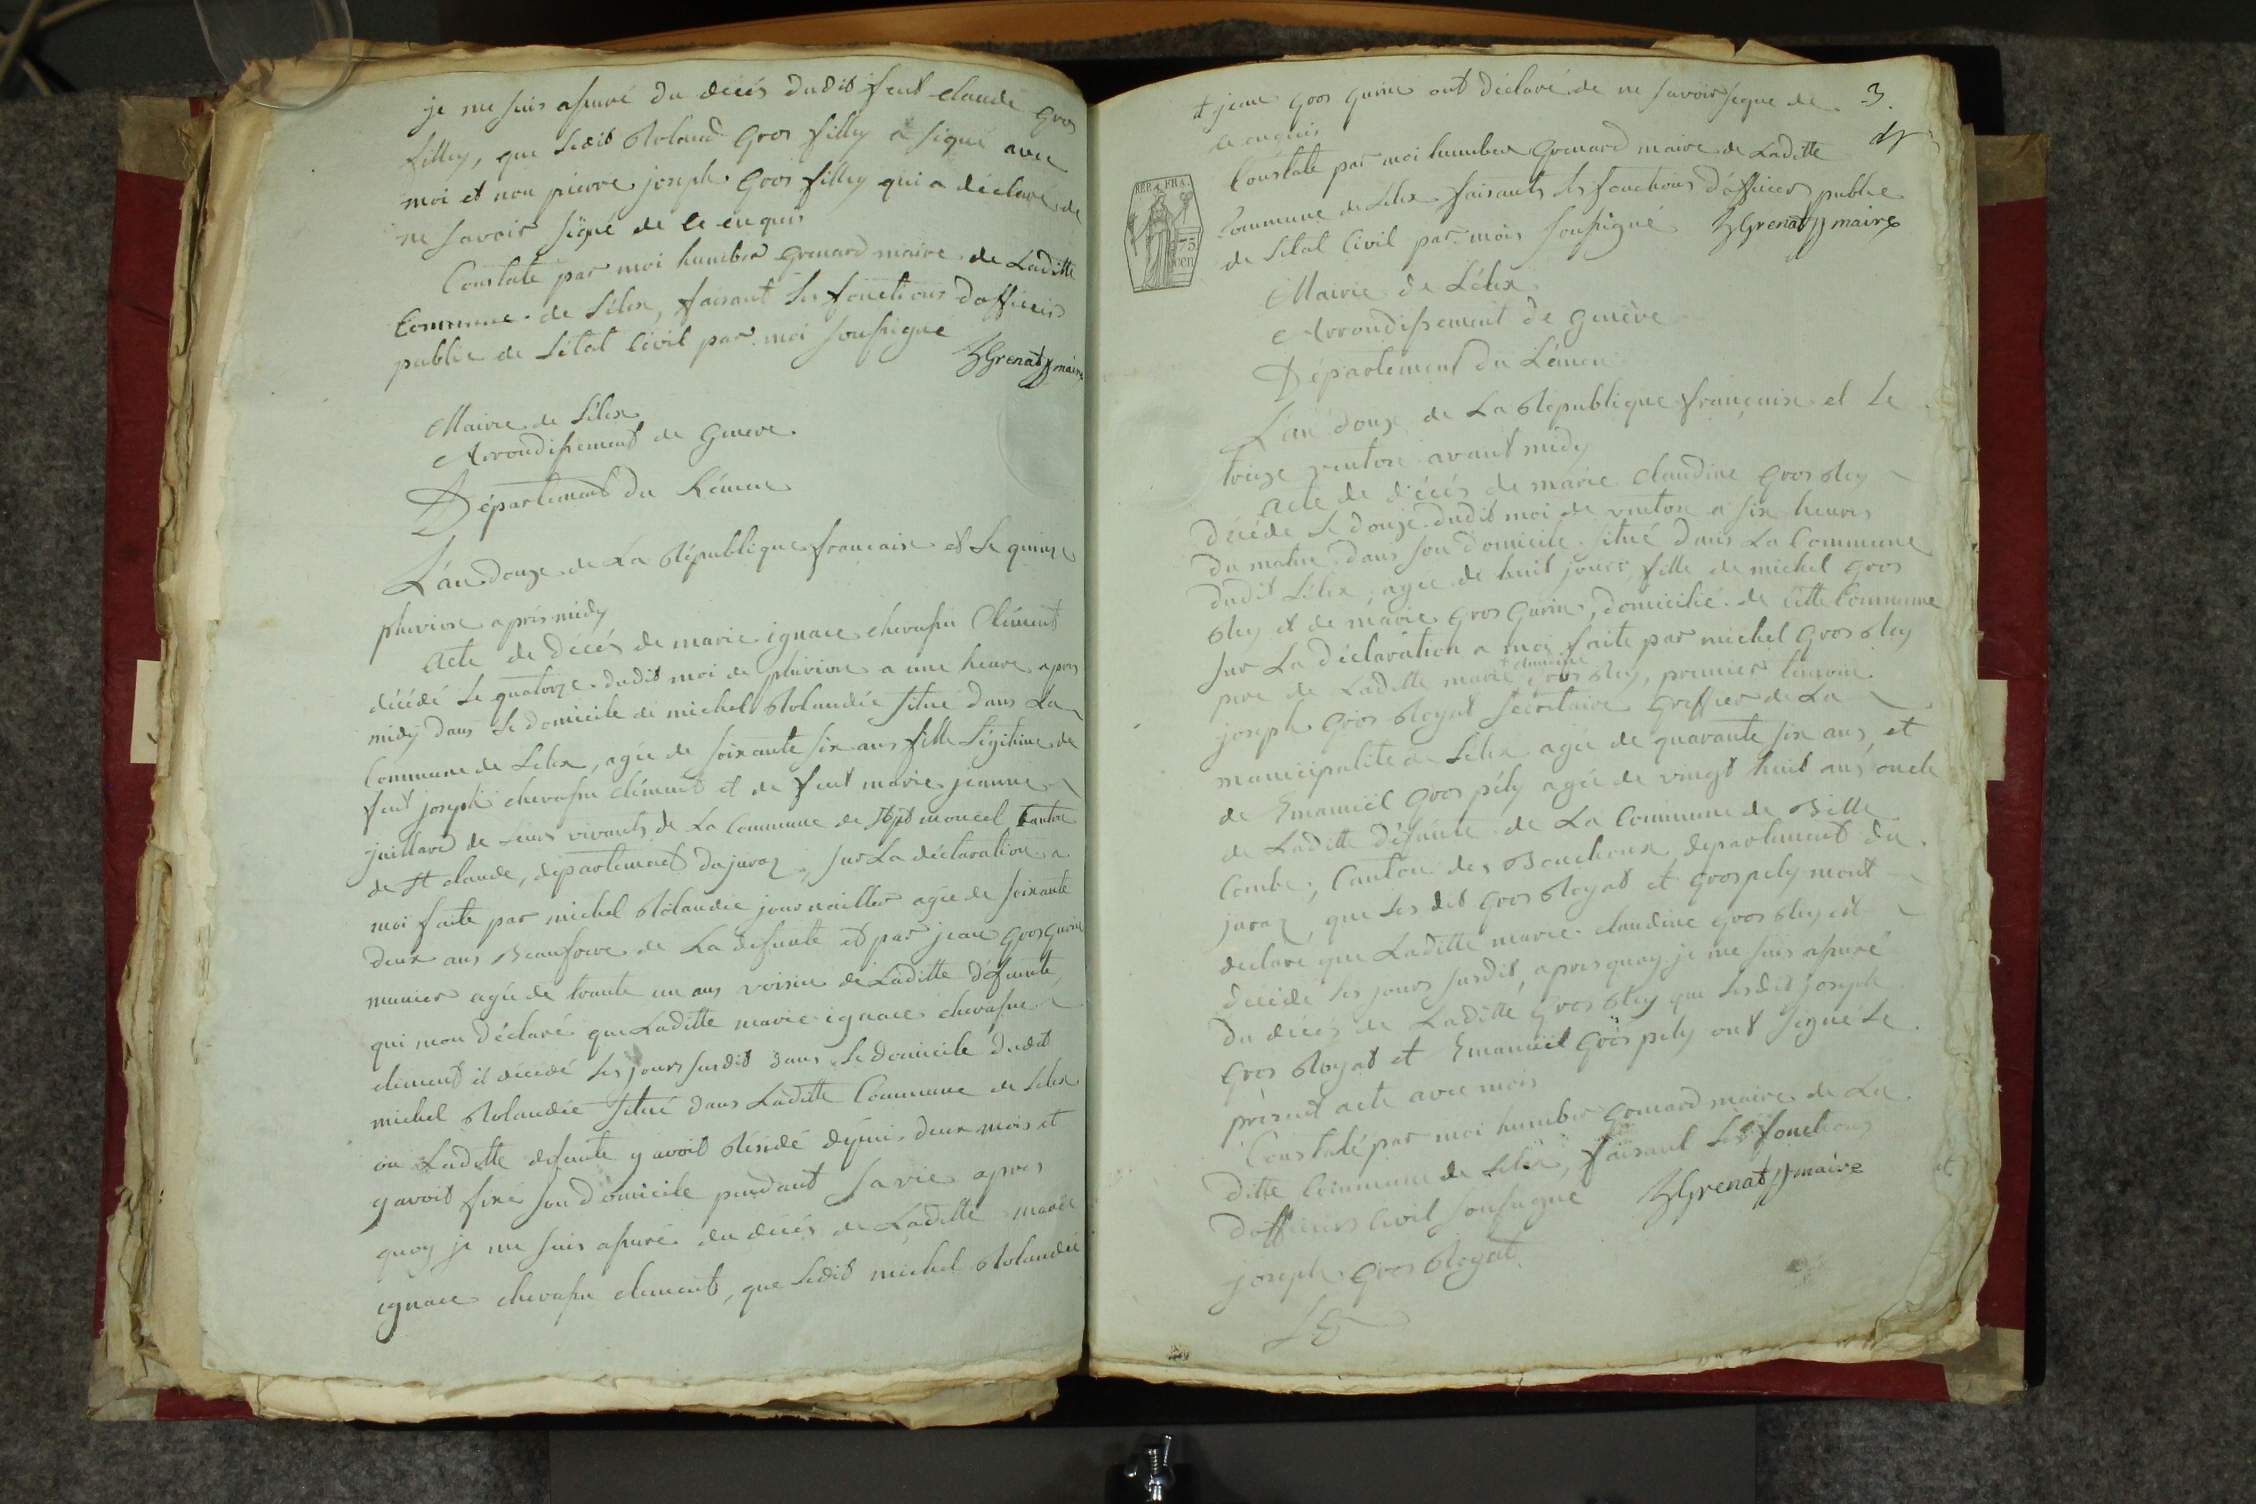 je me suis assuré du décés dudit feut claude Gros
filley, que Ledit Roland Gros filley a signé avec
moi et non pierre joseph Gros filley qui a déclaré de
ne savoir signé de ce enquis
Constaté par moi humber Grenard maire de Laditte
Commune de Lélex, faisant les fonctions d'officier
public de Létat Civil par moi soussigné
hGrenard maire
Mairie de Lélex
Arrondissement de Geneve
Département du Léman
L'an douze de La République francaise et Le quinze
pluviose apris midy
Acte de décés de marie ignace chevassu Clément
décédé Le quatorze dudit moi de pluviose a une heure apres
midy dans Le domicile de michel Rolandée situé dans La
Commune de Lélex, agée de soixante six ans fille Légitime de
feut joseph chevassu clément et de feut marie jeanne
juillard de Leurs vivants de La Commune de Sept moncel Canton
de St claude, département du juraz, sur La déclaration a
moi faite par michel Rolandée journaillier agée de soixante
deux ans Beaufrere de La defunte et par jean Gros Gurin
munier agée de trante un ans voisin de Laditte défunte
qui mon déclaré que Laditte marie ignace chevassu
clement it décédé Les jours susdit dans Le domicile dudit
michel Rolandée situé dans Laditte Commune de Lélex
ou Laditte defunte y avoit Résidé dépuis deux mois et
y avoit fixé son domicile pendant sa vie apres
quoy je me suis assuré du décés de Laditte marie
ignace chevassu clement, que Ledit michel Rolandée
et jean Gros Gurin ont déclaré de ne savoir signé de
ce enquis
3.
Constaté par moi humber Grenard maire de Laditte
Commune de Lélex faisants les fonctions d'officier public
de Létat Civil par mois soussigné hGrenard maire
REP. FRA.
75
cen
Mairie de Lélex
Arrondissement de Genève
Département du Léman
L'an douze de La République française et Le
treize ventose avant midy
Acte de décés de marie claudine Gros Rey
décédé Le douze dudit moi de ventose a six heures
du matin dans son domicile situé dans La Commune
dudit Lélex, agée de huit jours, fille de michel Gros
Rey et de marie Gros Gurin, domicilié de cette Commune
sur La déclaration a moi faite par michel Gros Rey
pere de Laditte marie claudine Gros Rey, premier temoin
joseph Gros Royat Secretaire Greffier de La
municipalité de Lélex agée de quarante six ans, et
de Emanuël Gros pély agée de vingt huit ans oncle
de Laditte défunte de La Commune de Belle
Combe, Canton des Bouchoux département du
juraz, que Les dit Gros Royat et Gros pely mont
declaré que Laditte marie claudine Gros Rey est
décédé Les jours susdit, apres quoy je me suis assuré
du décés de Laditte Gros Rey que Lesdit joseph
Gros Royat et Emanuël Gros pely ont signé Le
présent acte avec mois
Constaté par moi humber Grenard maire de La
ditte Commune de Lélex, faisant Les fonctions
d'officiers Civil soussigné hGrenard maire
joseph Gros Royat